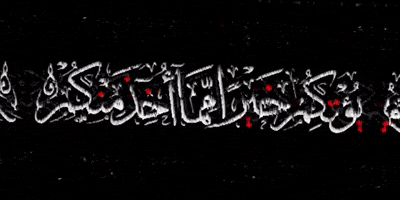 يؤتكم خيرا مما أخذ منكم